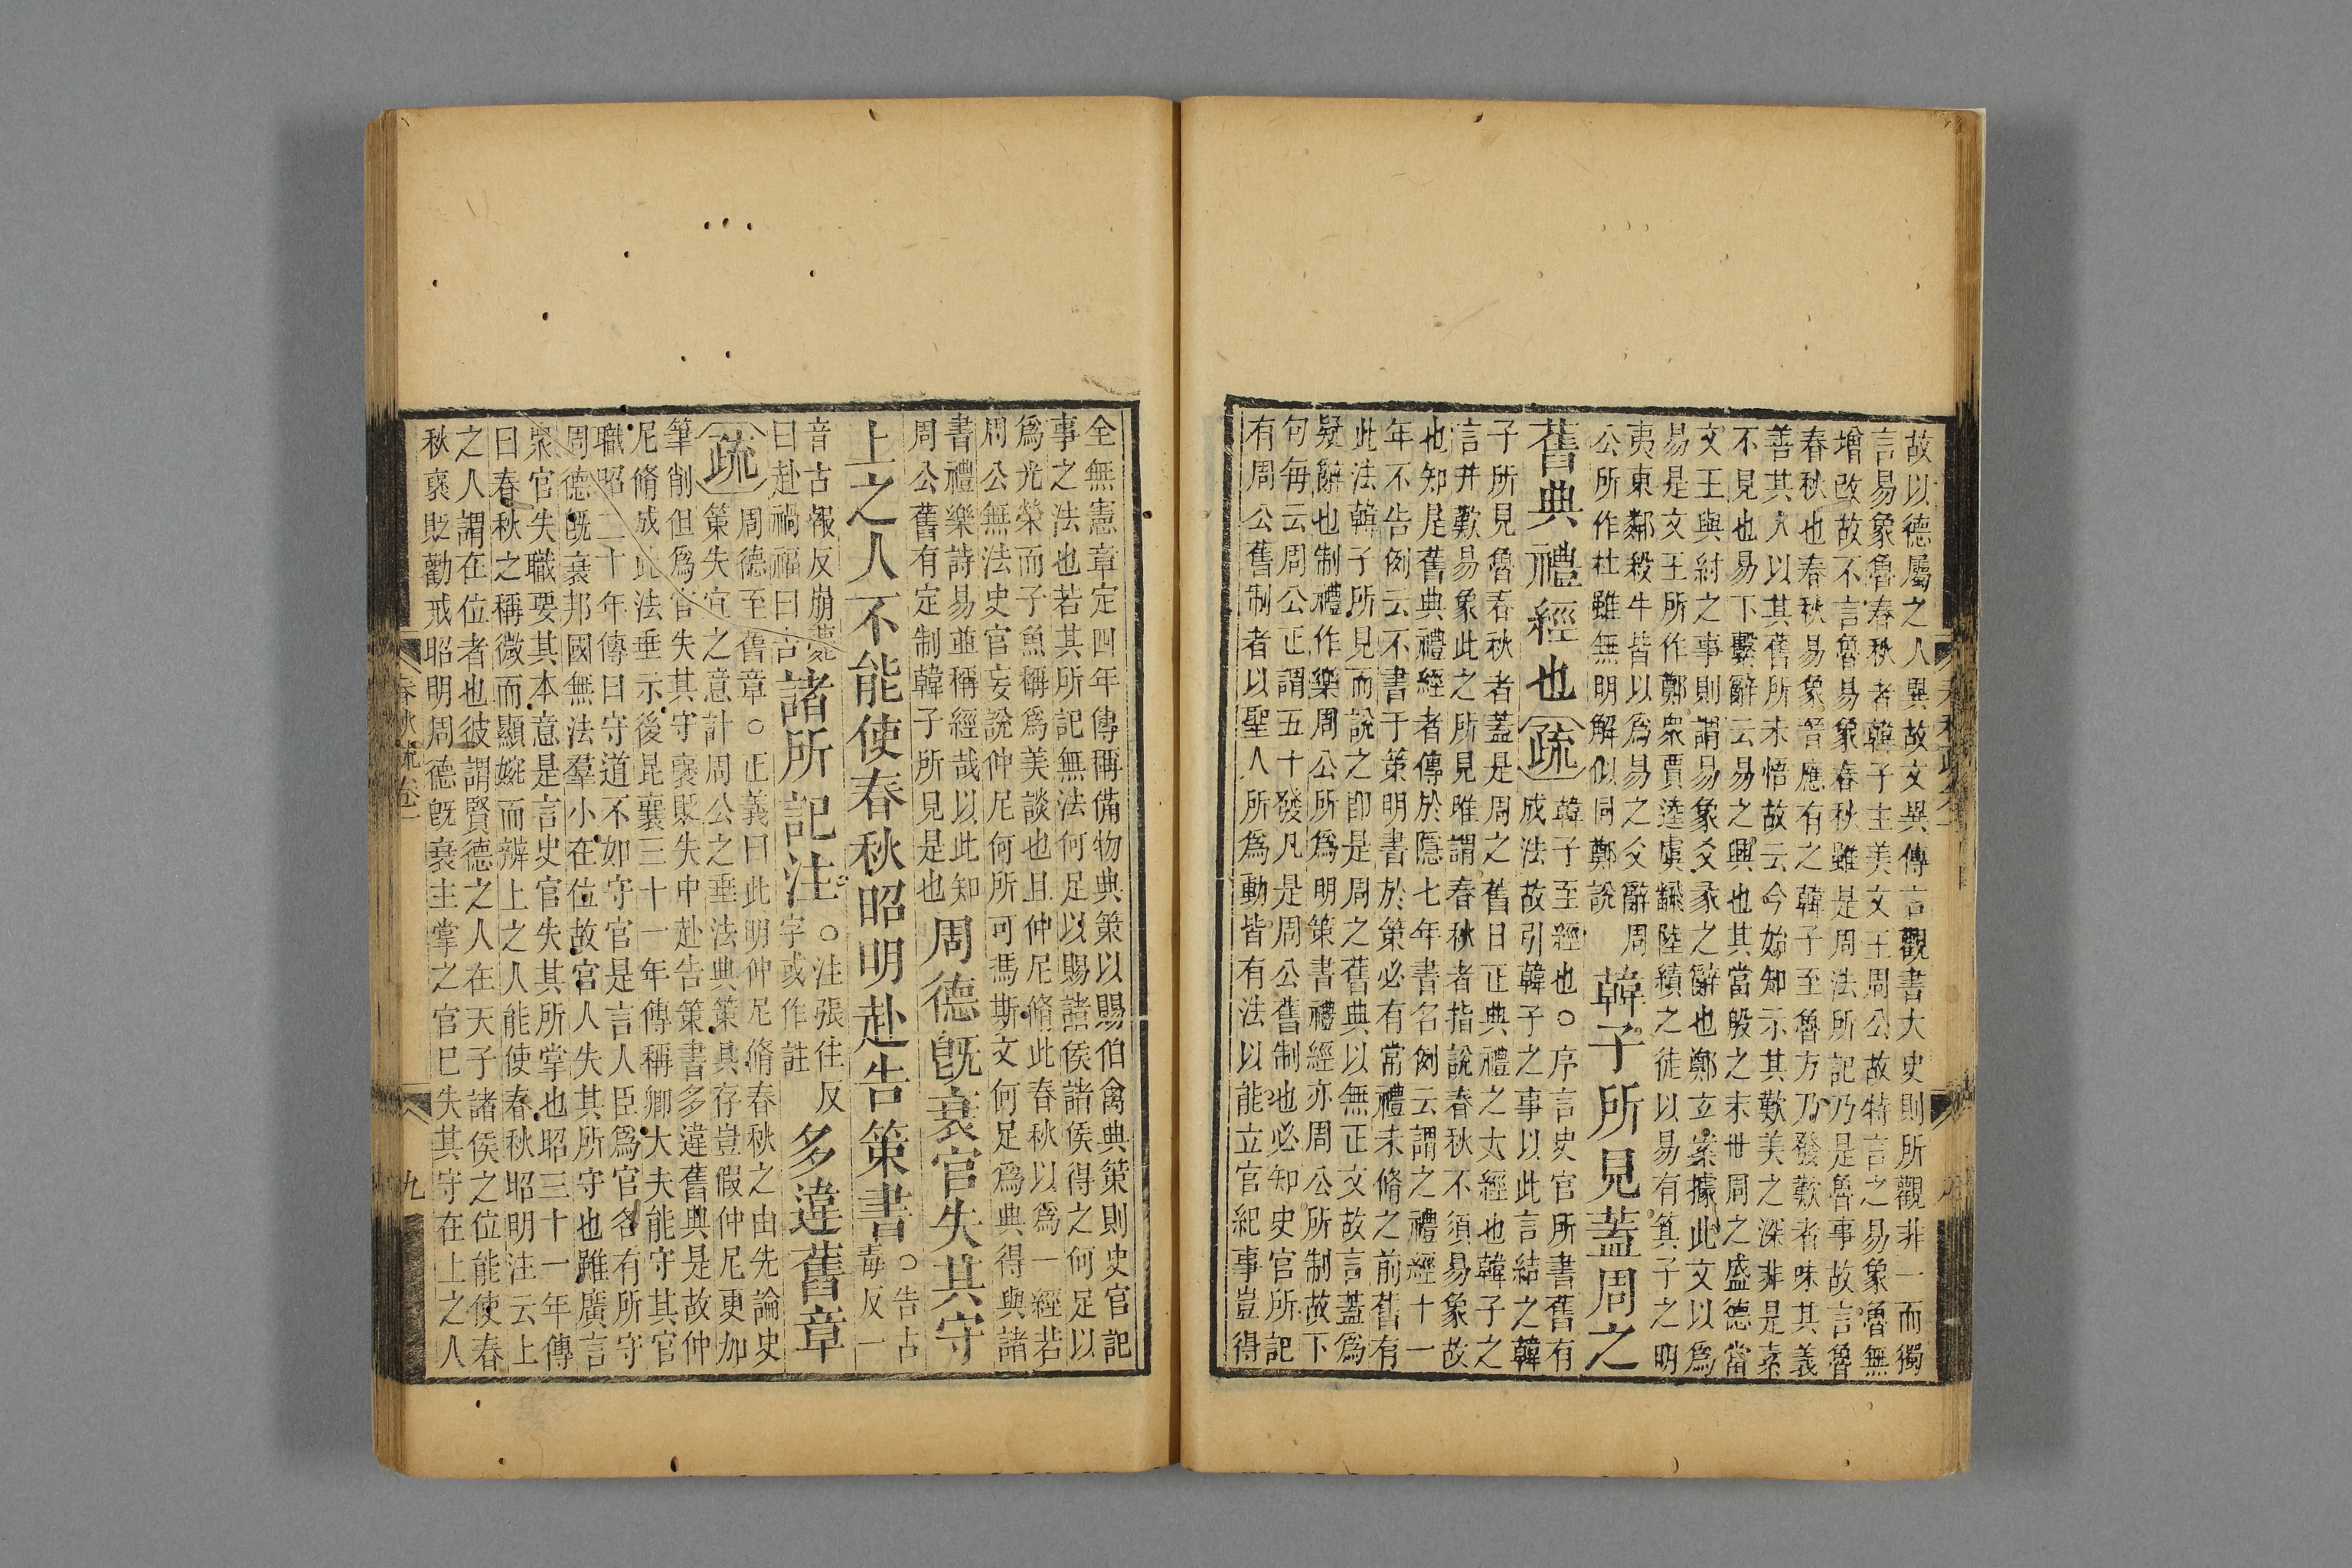 故以德屬之人異故文異傳言觀書大史則所觀非一而獨
言易象魯春秋者韓子主美文王周公故特言之易象魯無
增改故不言魯易象春秋雖是周法所記乃是魯事故言魯
春秋也春秋易象晉應有之韓子至魯方乃發歎者味其義
善其人以其舊所未悟故云今始知示其歎美之深非是素
不見也易下繫辭云易之興也其當殷之末世周之盛德當
文王與紂之事則謂易象爻彖之辭也鄭立案據此文以爲
易是文王所作鄭衆賈逵虞飜陸績之徒以易有箕子之明
夷東鄰殺牛皆以爲易之爻辭周
公所作杜雖無明解似同鄭說
韓子所見蓋周之
舊典禮經也
疏
韓子至經也○序言史官所書舊有
成法故引韓子之事以此言結之韓
子所見魯春秋者蓋是周之舊日正典禮之大經也韓子之
言并歎易象此之所見唯謂春秋者指說春秋不須易象故
也知是舊典禮經者傳於隱七年書名例云謂之禮經十一
年不告例云不書于策明書於策必有常禮未脩之前舊有
此法韓子所見而說之即是周之舊典以無正文故言蓋爲
疑辭也制禮作樂周公所爲明策書禮經亦周公所制故下
句每云周公正謂五十發凡是周公舊制也必知史官所記
有周公舊制者以聖人所爲動皆有法以能立官紀事豈得
全無憲章定四年傳稱備物典策以賜伯禽典策則史官記
事之法也若其所記無法何足以賜諸侯諸侯得之何足以
爲光榮而子魚稱爲美談也且仲尼脩此春秋以爲一經若
周公無法史官妄說仲尼何所可馮斯文何足爲典得與諸
書禮樂詩易並稱經哉以此知
周公舊有定制韓子所見是也
周德旣衰官失其守
上之人不能使春秋昭明赴告策書
○告古
毒反一
音古報反崩薨
曰赴禍福曰告
諸所記注
○注張住反
字或作註
多違舊章
疏
周德至舊章○正義曰此明仲尼脩春秋之由先論史
策失宜之意計周公之垂法典策具存豈假仲尼更加
筆削但爲官失其守褒貶失中赴告策書多違舊典是故仲
尼脩成此法垂示後昆襄三十一年傳稱卿大夫能守其官
職昭二十年傳曰守道不如守官是言人臣爲官各有所守
周德旣衰邦國無法羣小在位故官人失其所守也雖廣言
衆官失職要其本意是言史官失其所掌也昭三十一年傳
曰春秋之稱微而顯婉而辨上之人能使春秋昭明注云上
之人謂在位者也彼謂賢德之人在天子諸侯之位能使春
秋褒貶勸戒昭明周德旣衰主掌之官巳失其守在上之人
春秋疏卷一
九